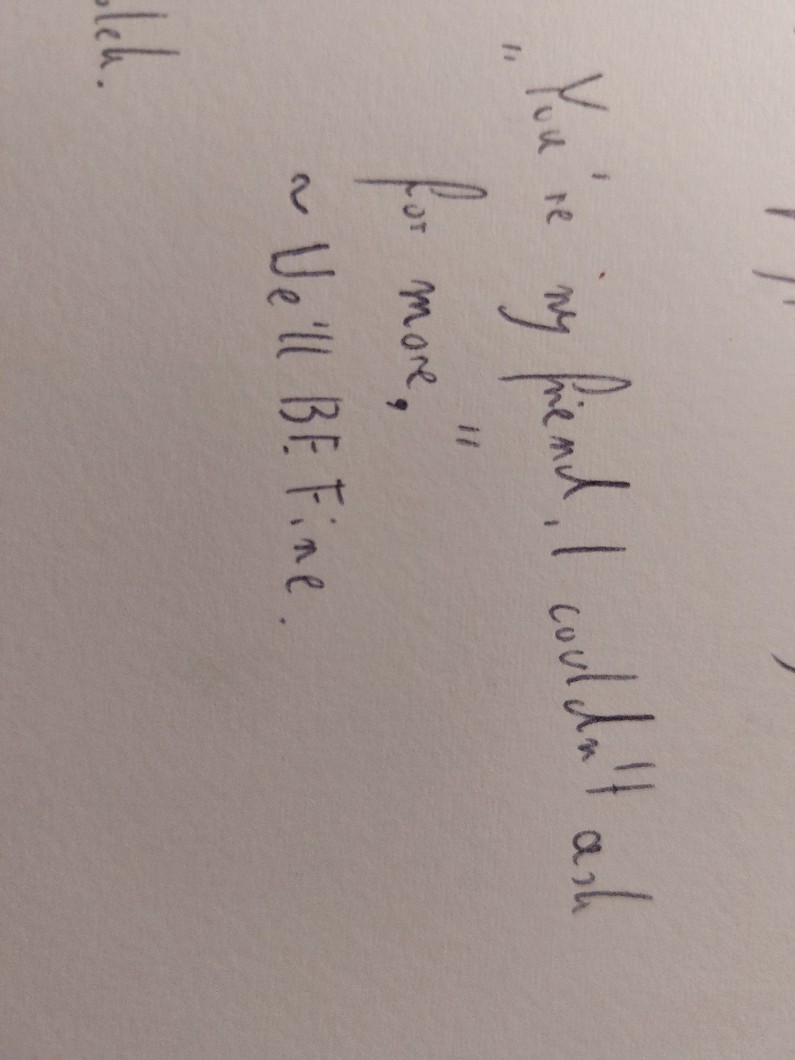 „You're my friend, I couldn't ask
for more,"
~ We'll BE Fine.